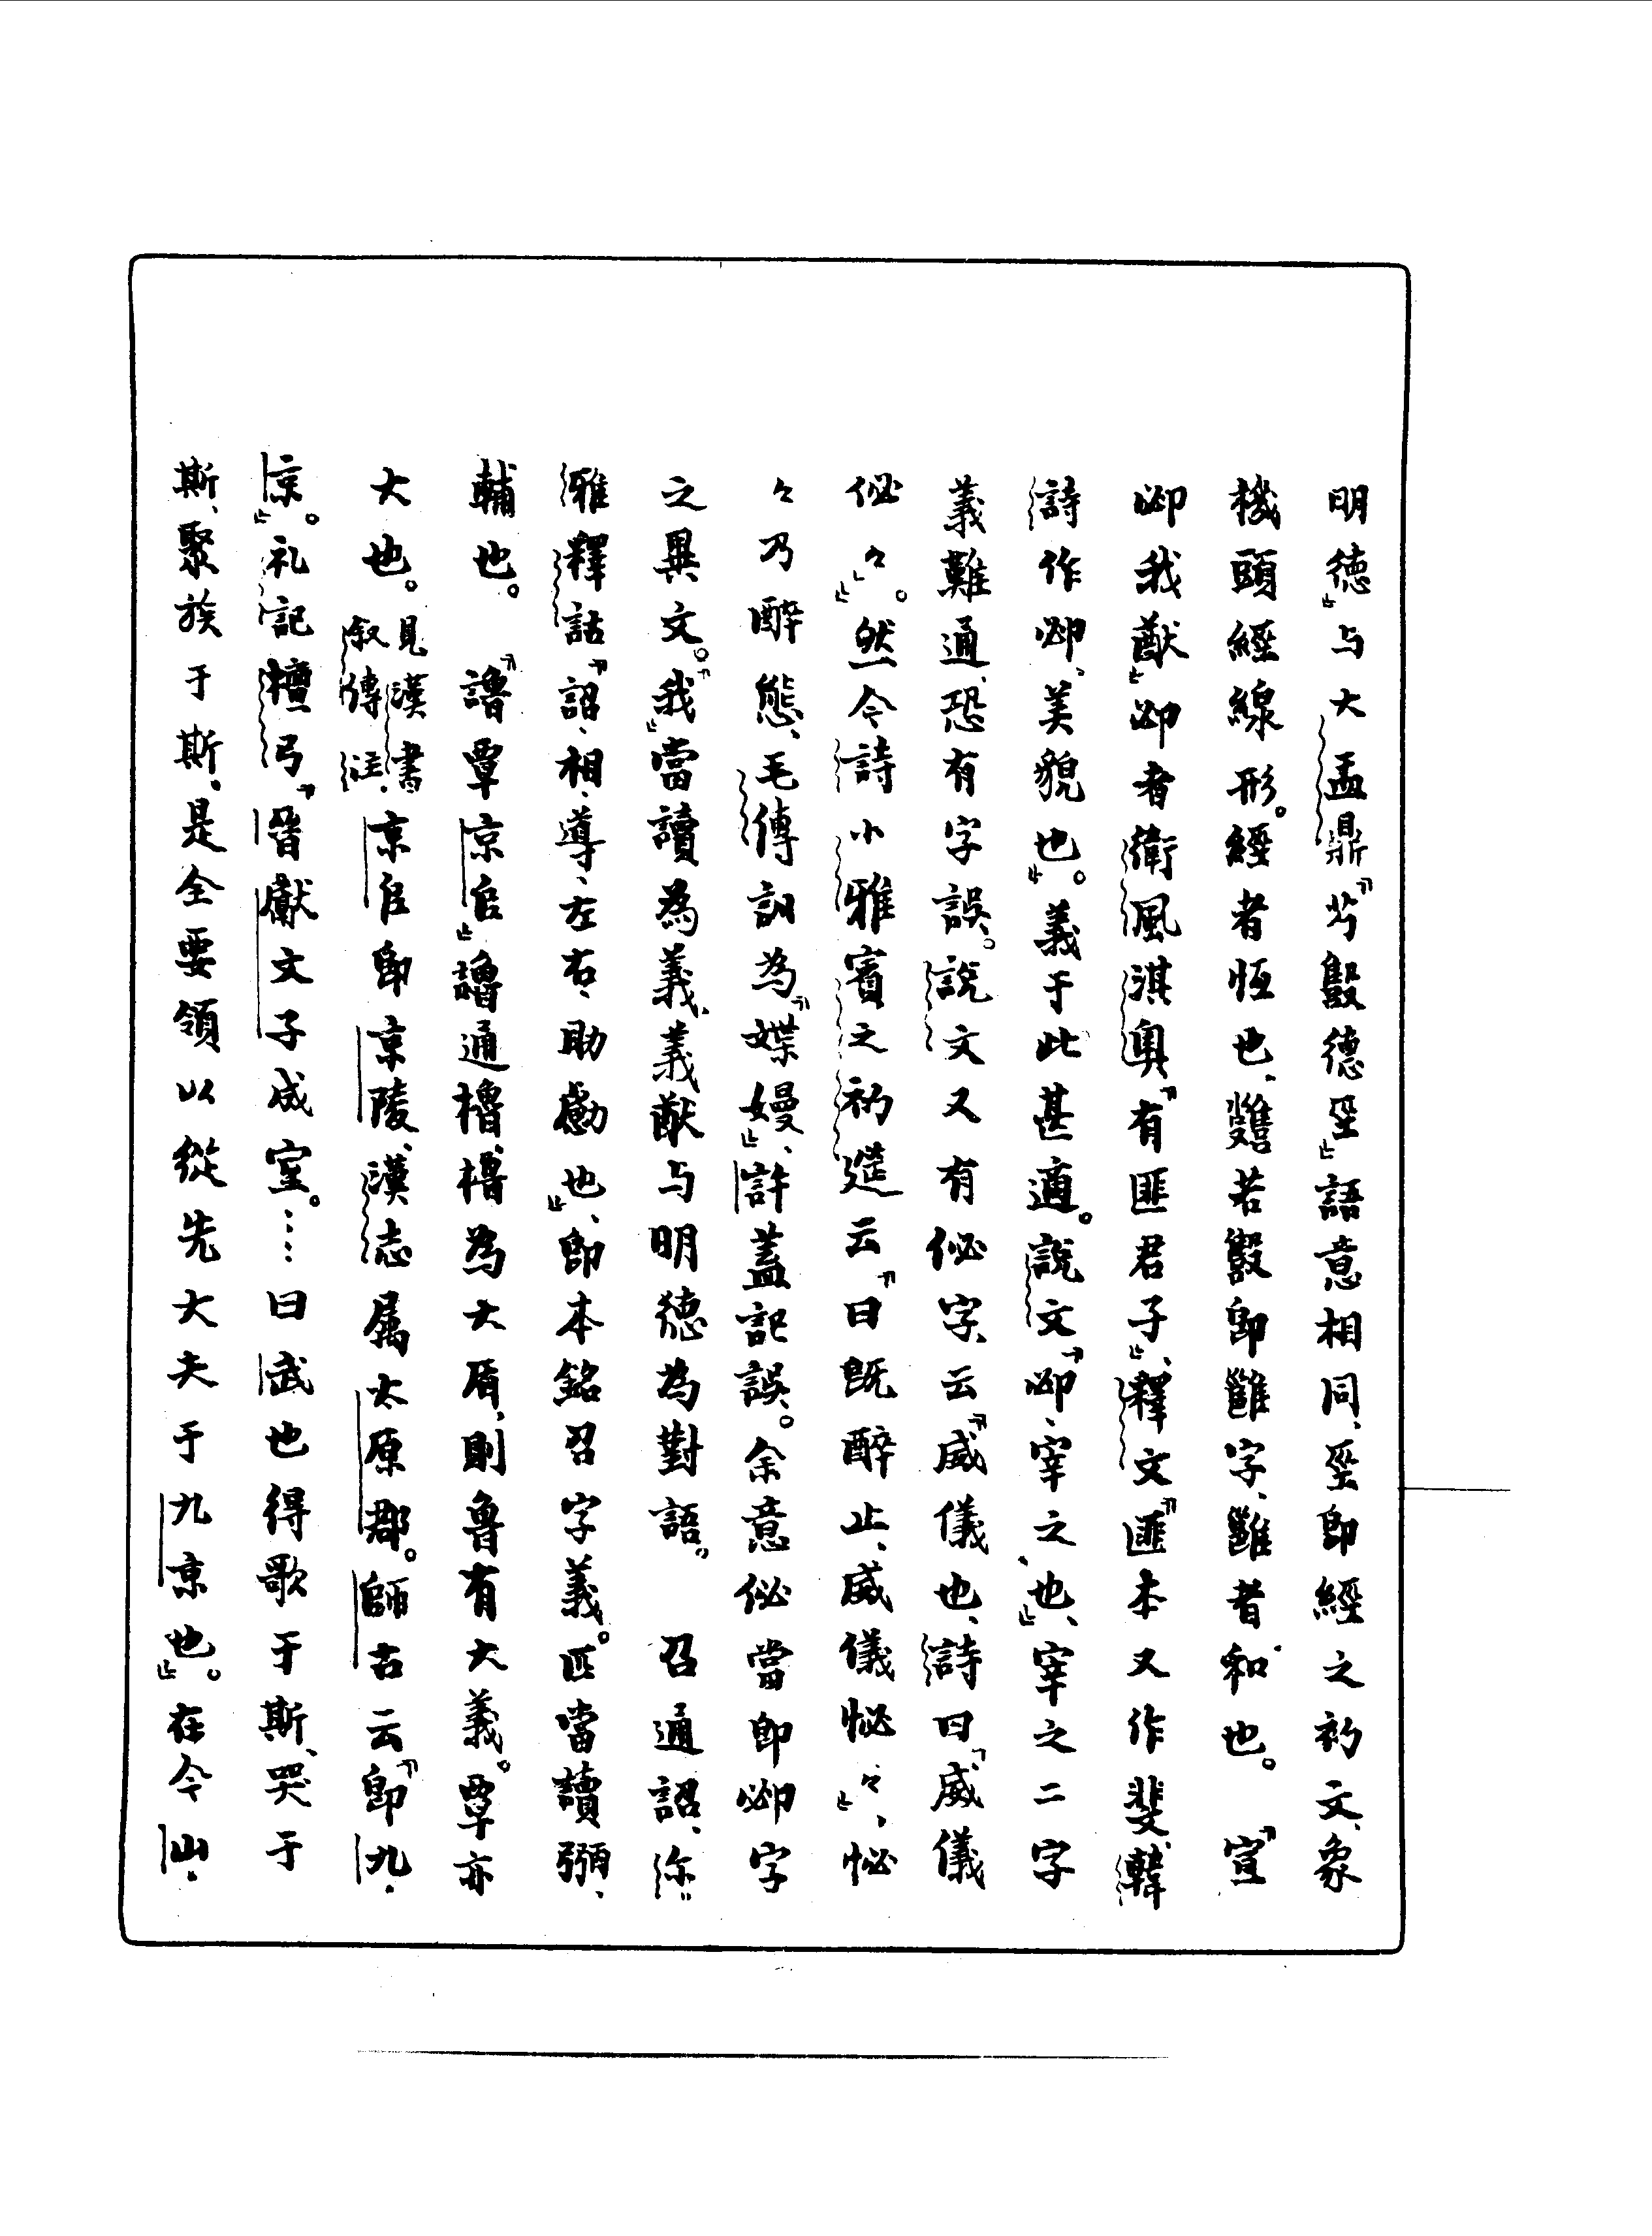 明德」与大盂鼎「芍毄德巠」語意相同、巠即經之初文、象
機頭經線形。經者恆也、雝若毄即雝字、雝者和也。「宣
卲我猷」卲者衛風淇奧「有匪君子」、釋文「匪本又作斐、韓
詩作卲、美貌也」。義于此甚適。說文「卲、宰之也」、宰之二字
義難通、恐有字誤。說文又有佖字、云「威儀也、詩曰『威儀
佖々』」。然今詩小雅賓之初筵云「曰既醉止、威儀怭々」、怭
々乃醉態、毛傳訓為「媟嫚」、許蓋記誤。余意佖當即卲字
之異文。「我」當讀為義、義猷与明德為對語。 召通詔、尔
雅釋詁「詔、相、導、左右、助勴也」、即本銘召字義。匹當讀弼、
輔也。 「譖覃京𠂤」譖通櫓、櫓為大盾、則魯有大義。覃亦
大也。見漢書叙傳注、京𠂤即京陵、漢志屬太原郡。師古云「即九
京」。礼記檀弓「晉獻文子成室。……曰武也得歌于斯、哭于
斯、聚族于斯、是全要領以從先大夫于九京也」。在今山